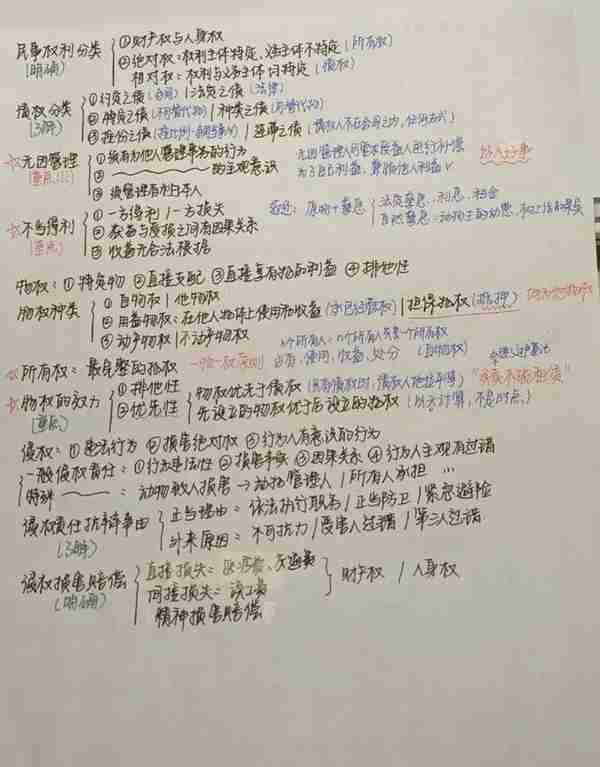 民事权利分类 ① 财产权与人身权
(明确) ② 绝对权：权利主体特定，义务主体不特定 (所有权)
相对权：权利与义务主体均特定 (债权)
债权分类 ① 约定之债 (合同) | 法定之债 (法律)
(了解) ② 特定之债 (不可替代物) | 种类之债 (可替代物)
③ 按份之债 | 连带之债
☆ 无因管理 ① 须有为他人管理事务的行为
(重点!!!) ② —— 的主观意识
③ 须管理有利于本人
为了自己利益，兼顾他人利益 ✓
☆ 不当得利 ① 一方得利 / 一方损失
(重点) ② 获益与受损之间有因果关系
③ 收益无合法根据
返还：原物+孳息 法定孳息：利息、租金
自然孳息：动物生的幼崽，树上结的果实
物权：① 特定物 ② 直接支配 ③ 直接享有物的利益 ④ 排他性
物权种类 ① 自物权 | 他物权
② 用益物权：在他人物体上使用和收益 (承包经营权) | 担保物权 (抵押)
③ 动产物权 | 不动产物权
☆ 所有权：最完整的物权 一物一权原则 占有、使用、收益、处分 (自物权)
☆ 物权的效力 ① 排他性 物权优先于债权
(重点) ② 优先性 先设立的物权优于后设立的物权
"买卖不破租赁"
侵权：① 违法行为 ② 损害绝对权 ③ 行为人有意识的行为
一般侵权责任：① 行为违法性 ② 损害事实 ③ 因果关系 ④ 行为人主观有过错
特殊 ——：动物致人损害 → 动物管理人 / 所有人承担 …
侵权责任抗辩事由 正当理由：依法执行职务 / 正当防卫 / 紧急避险
(了解) 外来原因：不可抗力 / 受害人过错 / 第三人过错
侵权损害赔偿 直接损失：医药费、交通费
(明确) 间接损失：误工费 财产权 / 人身权
精神损害赔偿